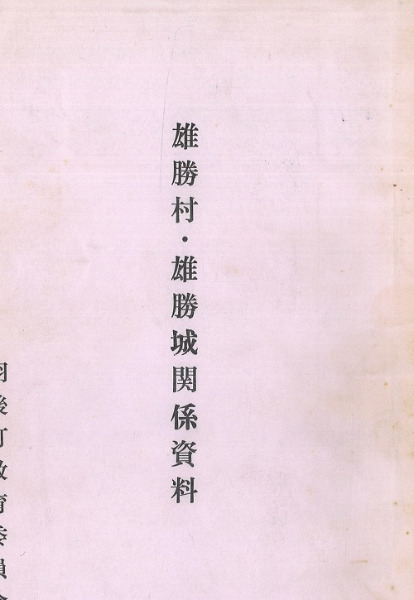 雄勝村・雄勝城関係資料
羽後町教育委員会